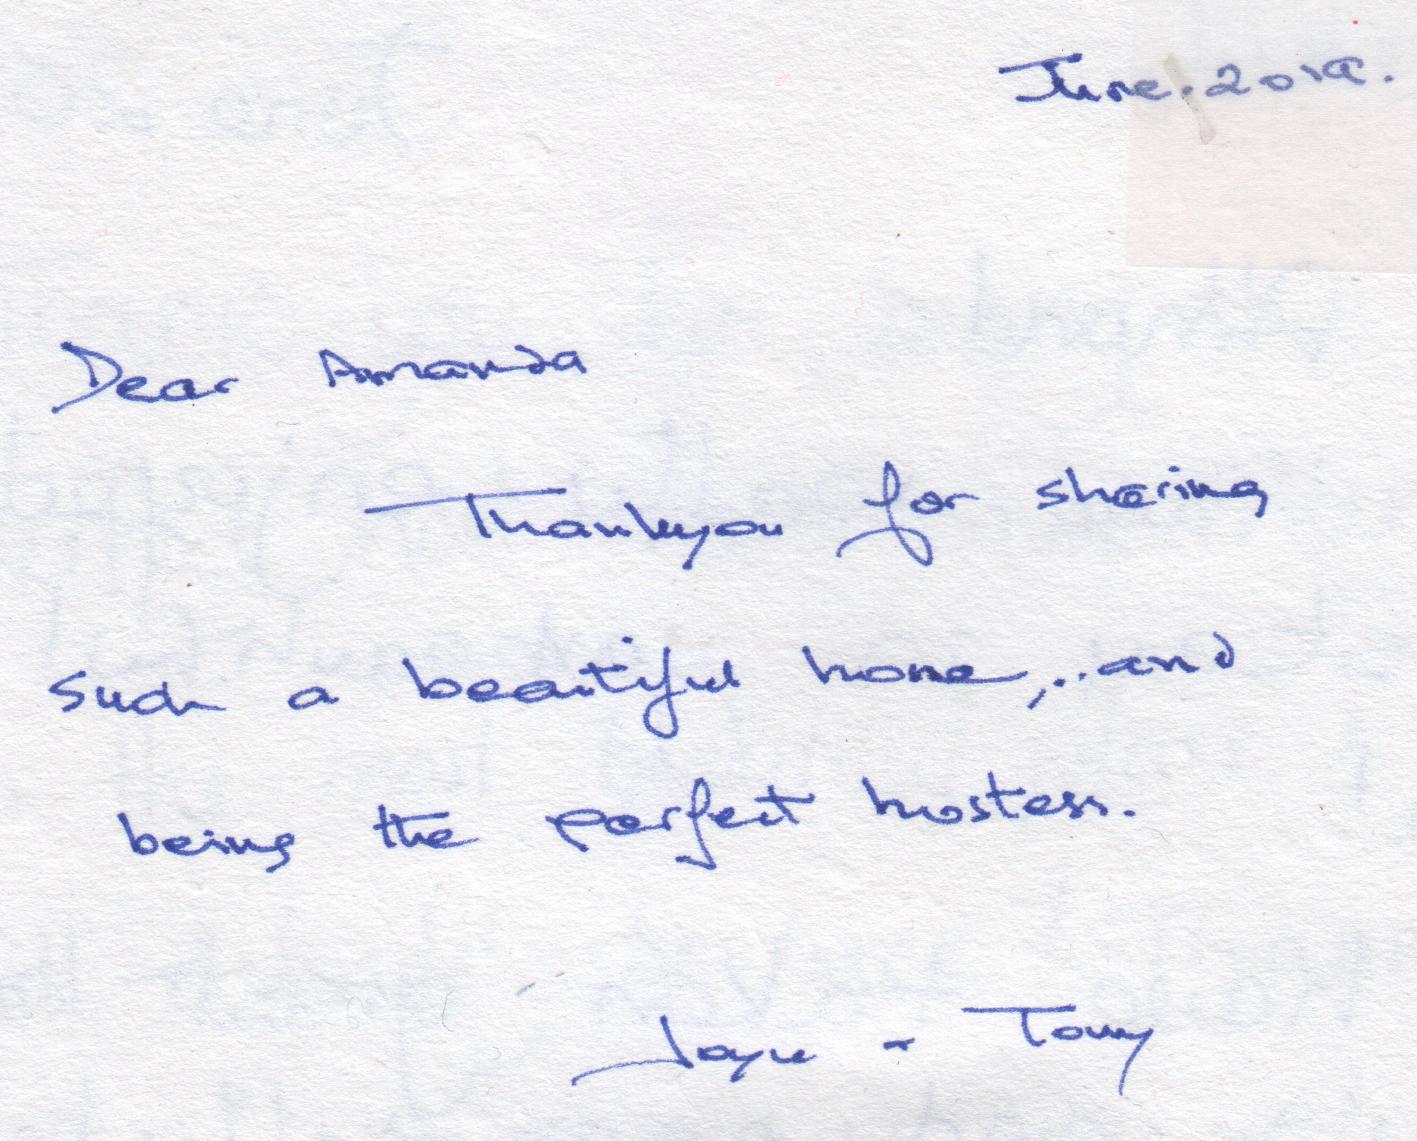 June. 2019.
Dear Amanda
Thankyou for sharing
such a beautiful home,..and
being the perfect hostess.
Joyce + Tony